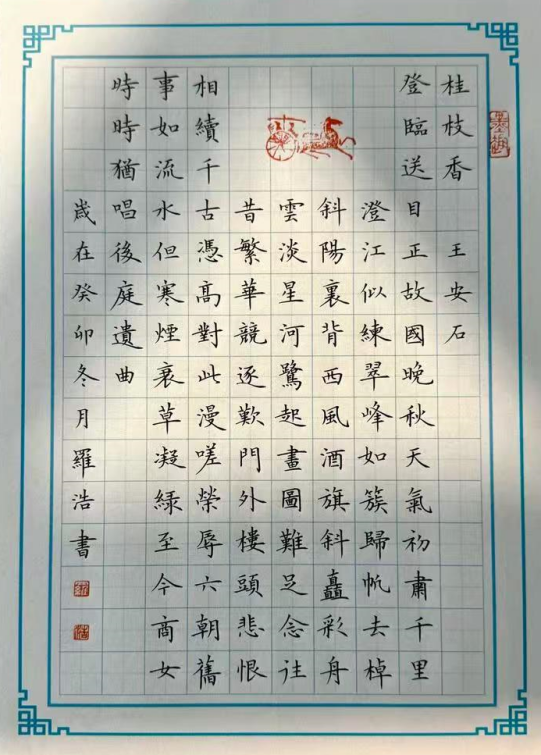 桂枝香 王安石
登臨送目正故國晚秋天氣初肅千里
澄江似練翠峰如簇歸帆去棹
斜陽裏背西風酒旗斜矗彩舟
雲淡星河鷺起畫圖難足念往
昔繁華競逐歎門外樓頭悲恨
相續千古憑高對此漫嗟榮辱六朝舊
事如流水但寒煙衰草凝綠至今商女
時時猶唱後庭遺曲
歲在癸卯冬月羅浩書